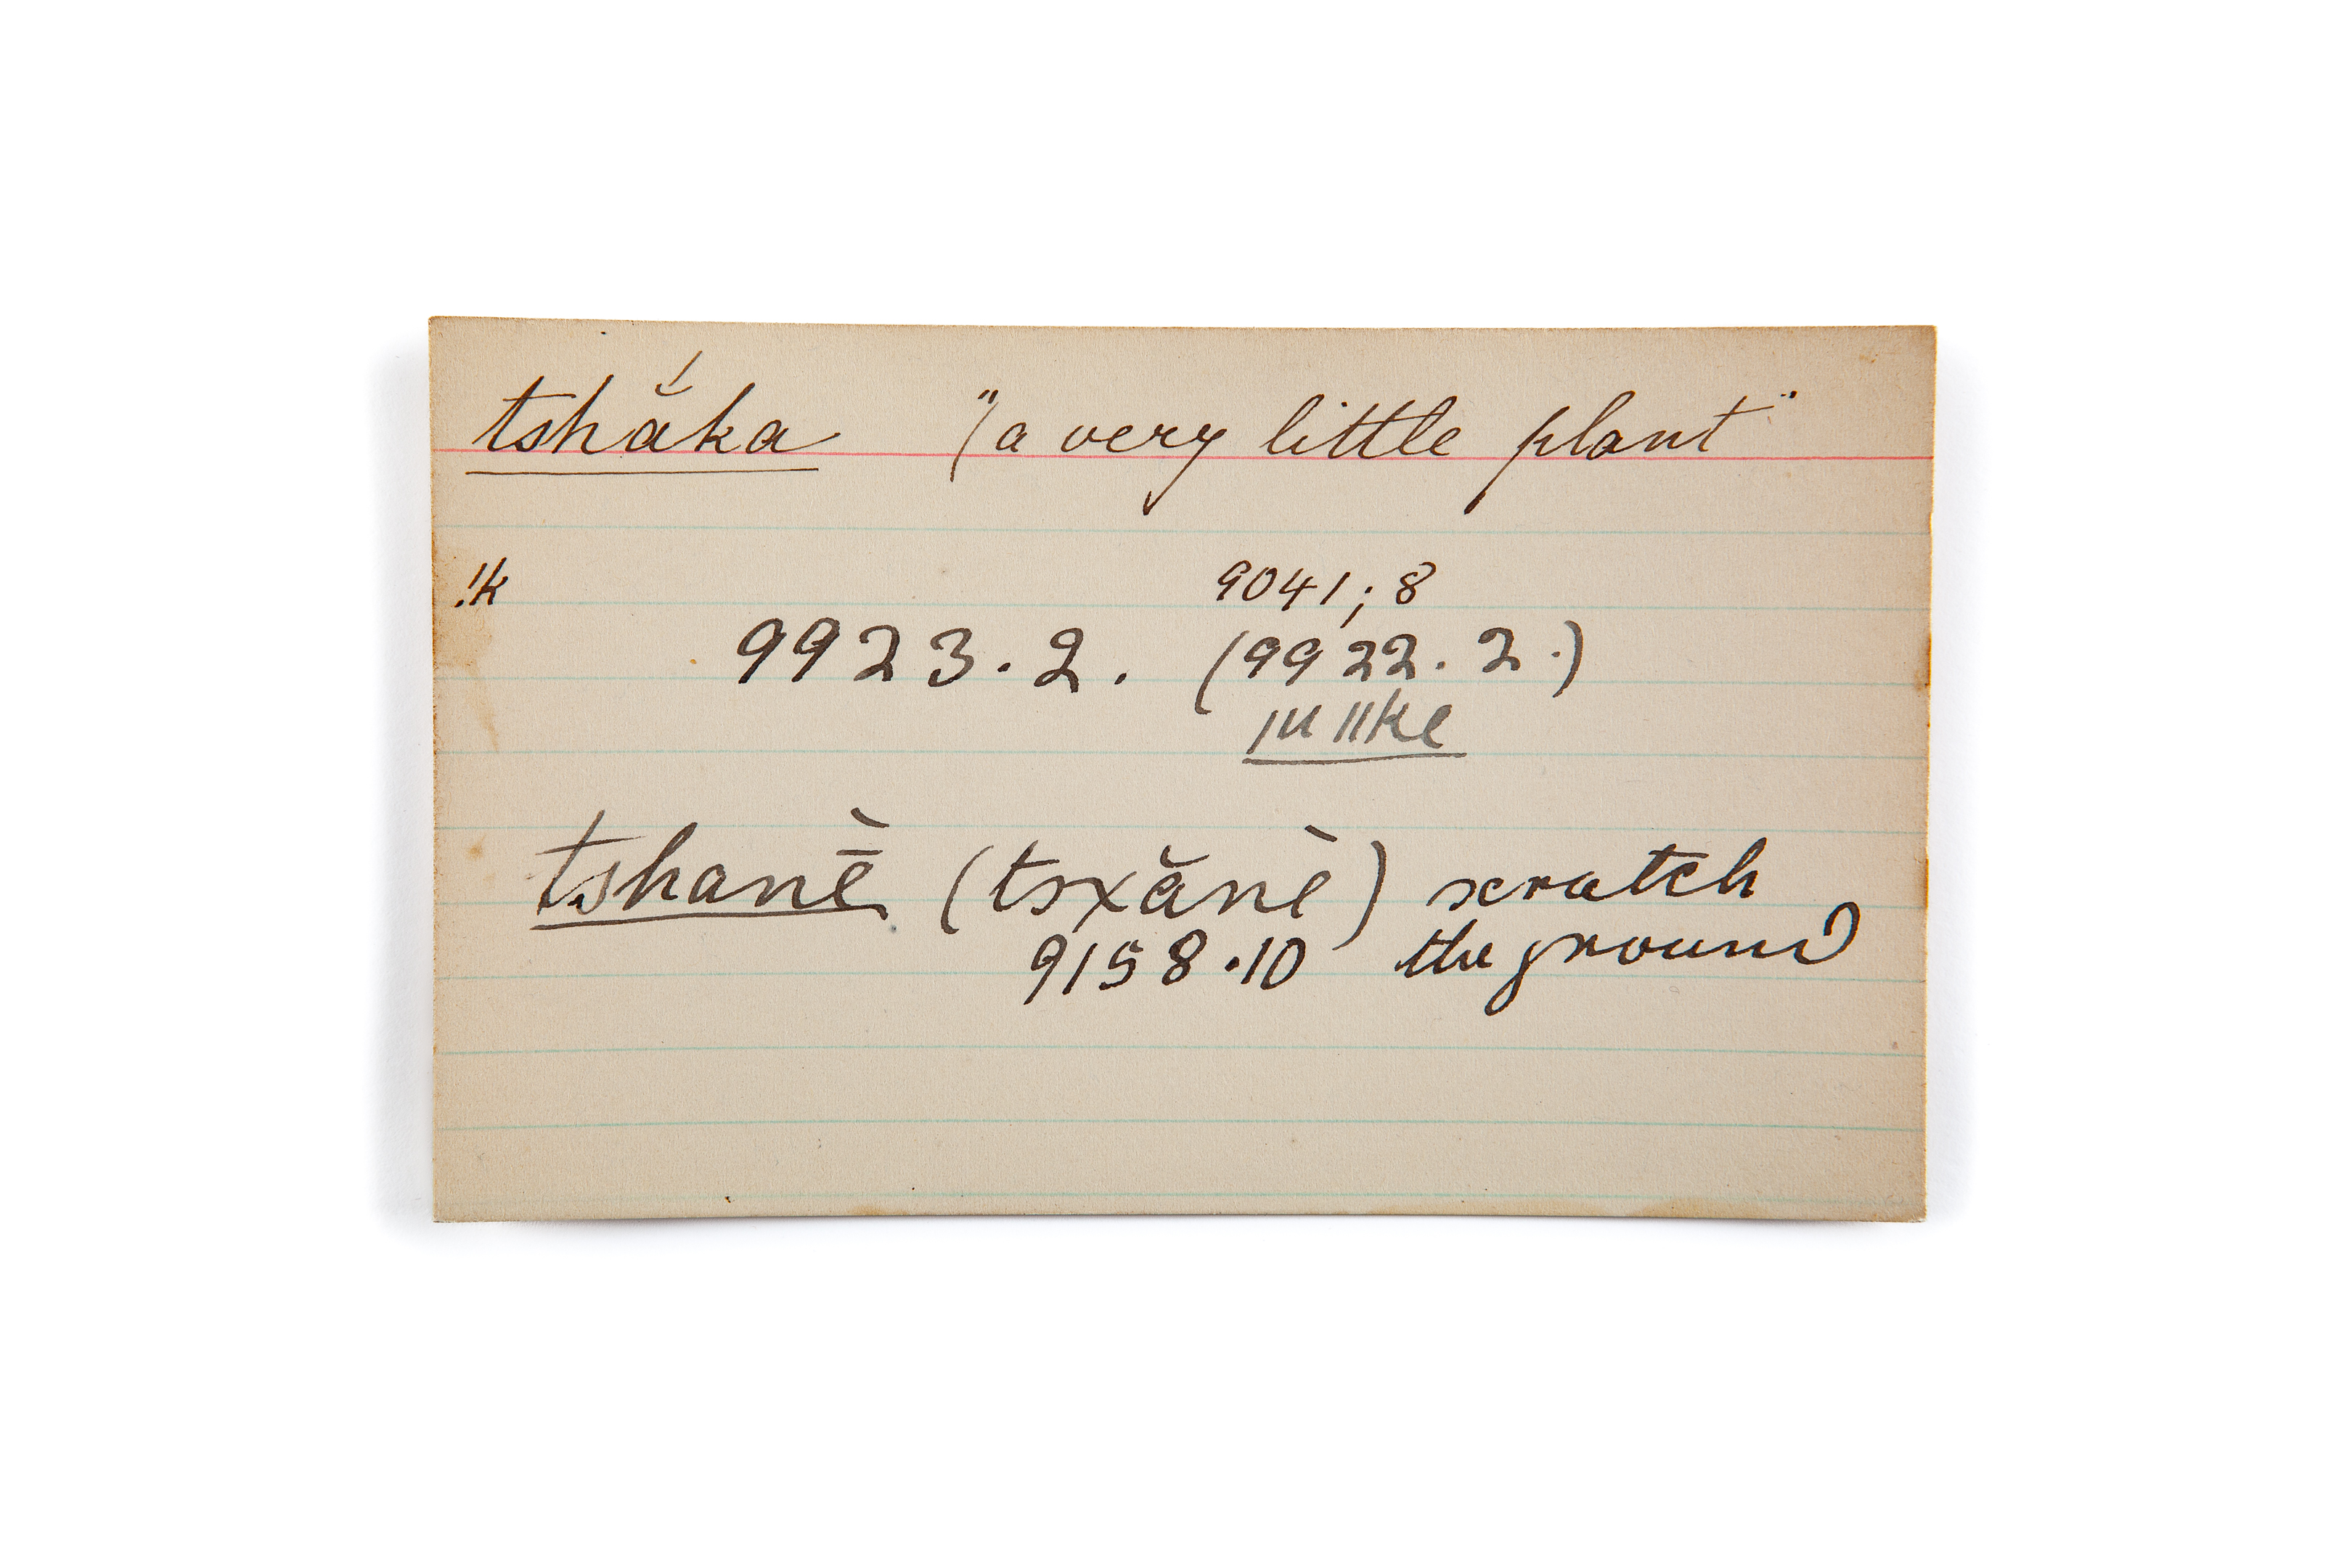 tshắka "(a very little plant"
!k 9041; 8
9923. 2. (9922. 2.)
|u ||ke
tshanḕ (tsxănè) scratch
9158.10 the ground